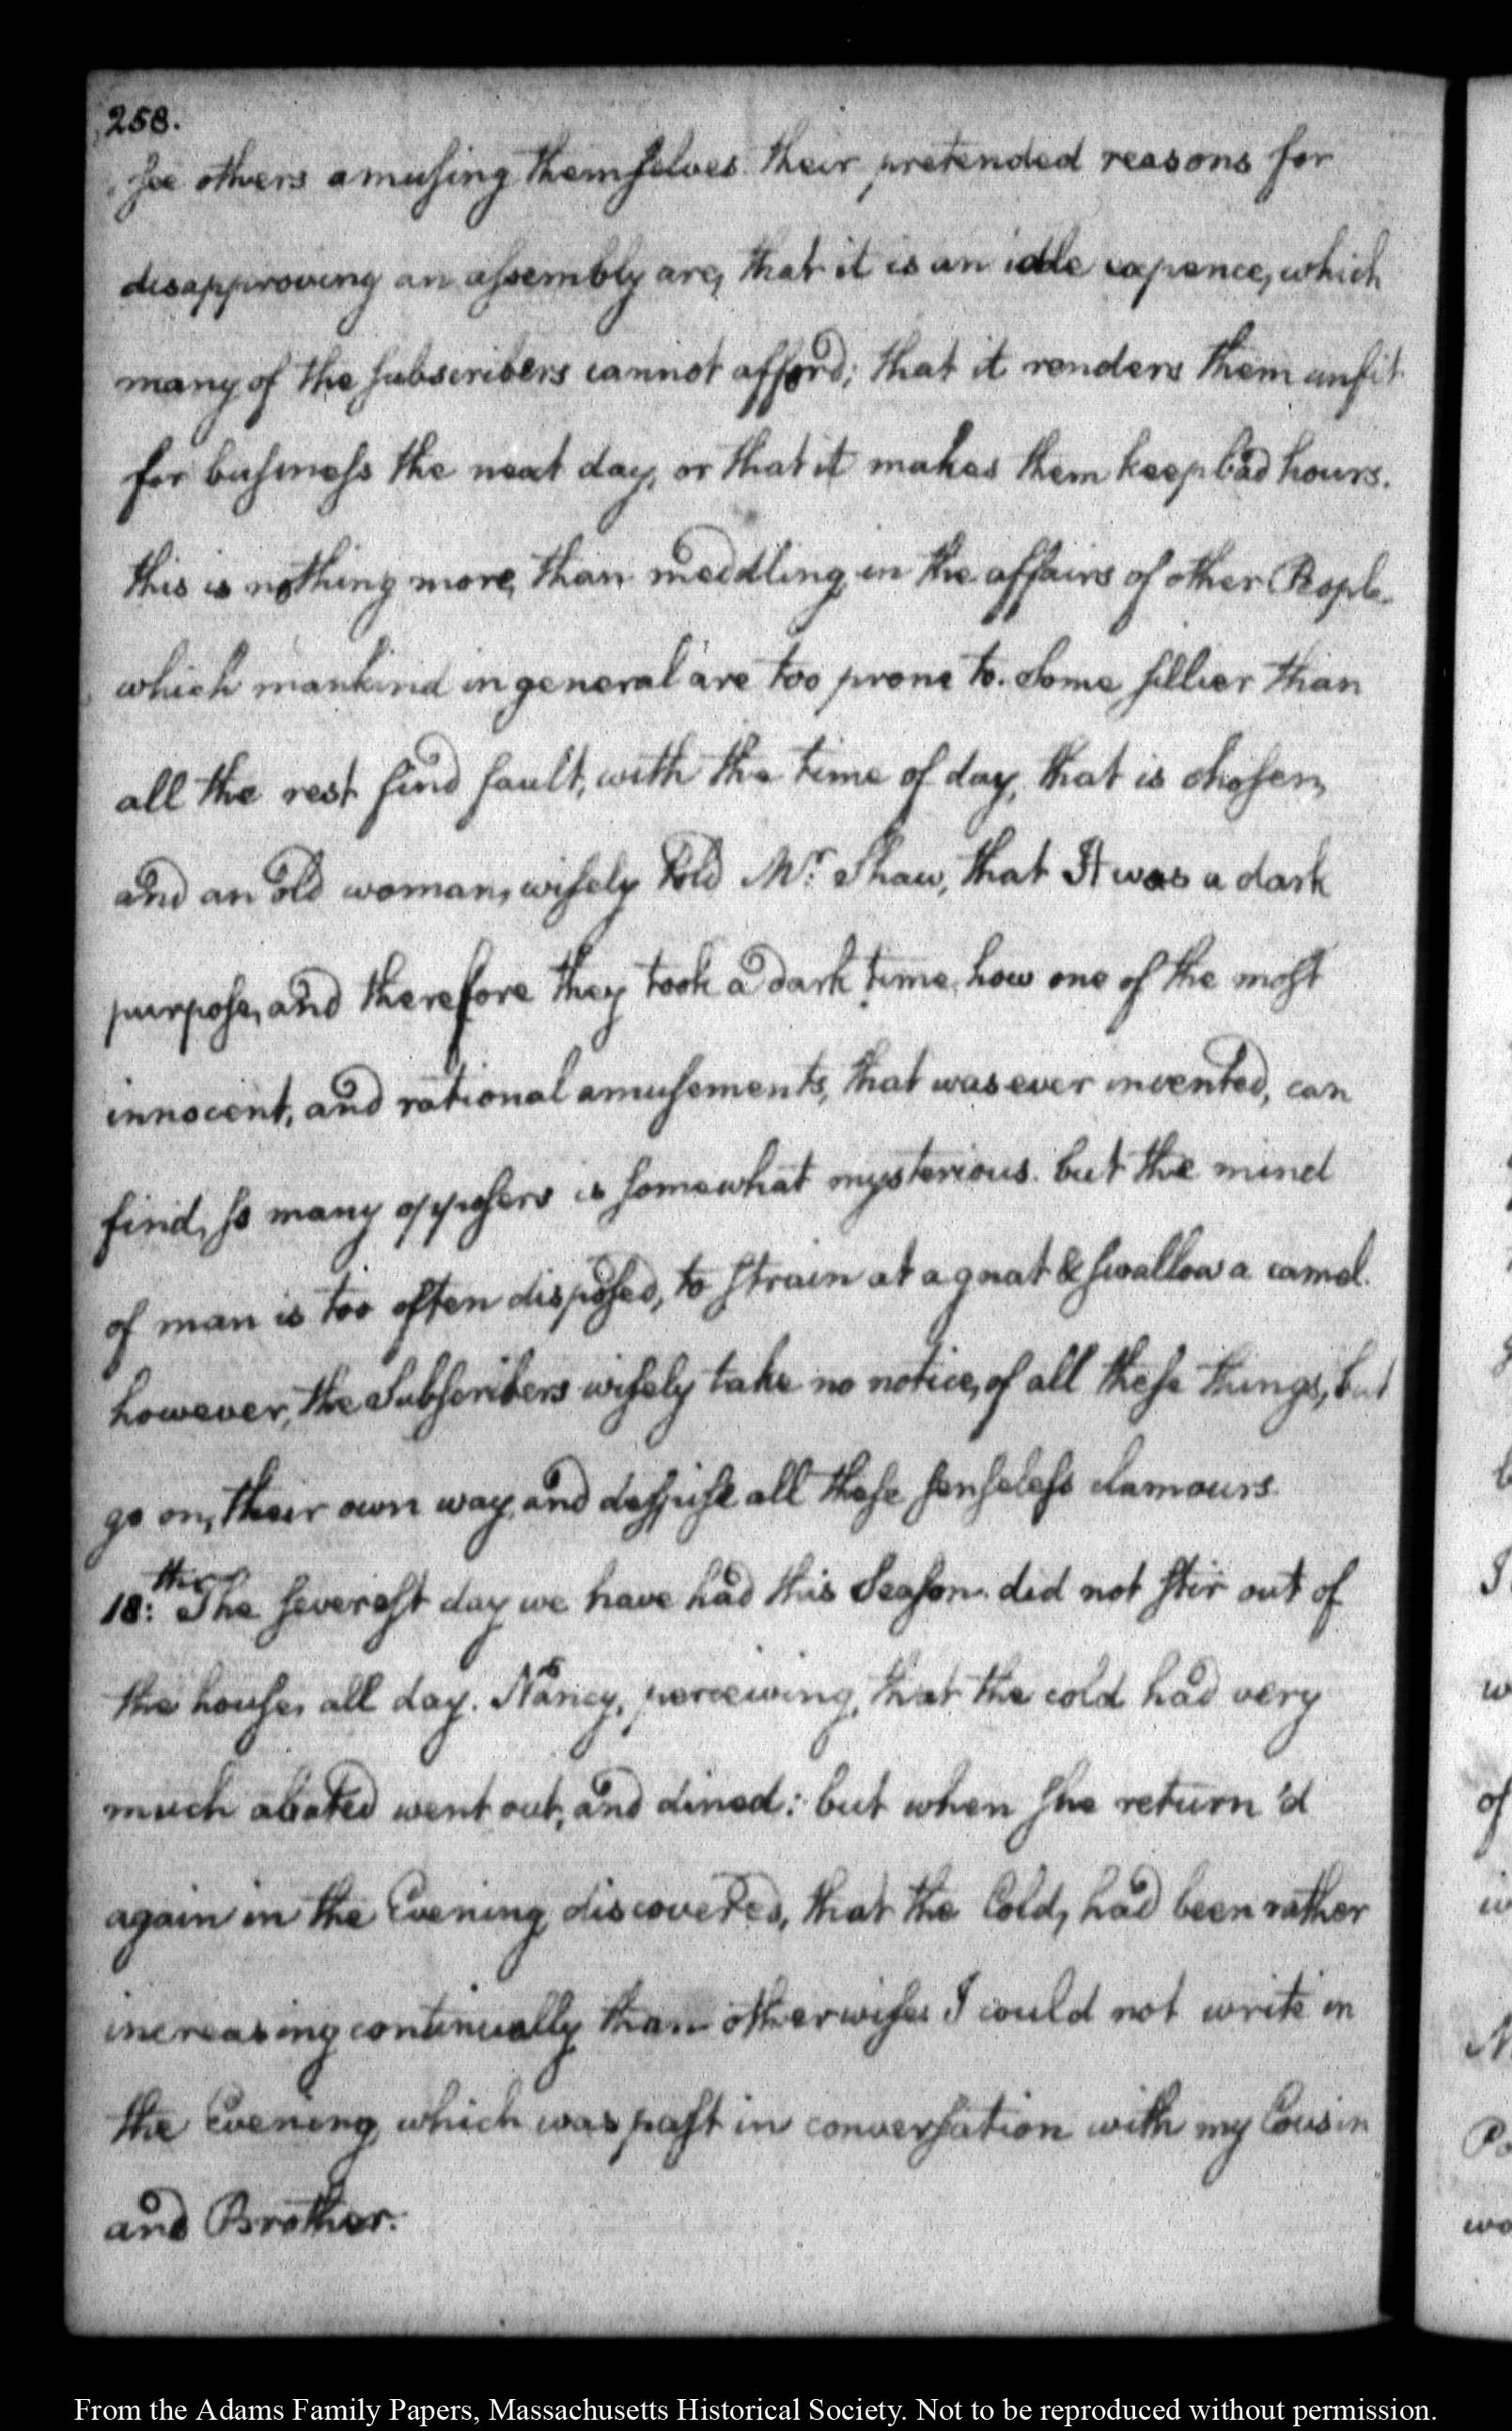 258.
see others amusing themselves. their pretended reasons for
disapproving an assembly are, that it is an idle expence, which
many of the subscribers cannot afford; that it renders them unfit
for business the next day, or that it makes them keep bad hours.
this is nothing more, than meddling in the affairs of other People.
which mankind in general are too prone to. Some sillier than
all the rest find fault, with the time of day, that is chosen,
and an old woman, wisely told Mr. Shaw, that It was a dark
purpose, and therefore they took a dark time, how one of the most
innocent, and rational amusements, that was ever invented, can
find, so many opposers is somewhat mysterious. but the mind
of man is too often disposed, to strain at a gnat & swallow a camel.
however, the Subscribers wisely take no notice, of all these things, but
go on, their own way, and despise all these senseless clamours.
18:th The severest day we have had this Season. did not stir out of
the house, all day. Nancy, perceiving, that the cold had very
much abated went out, and dined: but when she return'd
again in the Evening, discovered, that the Cold, had been rather
increasing continually than otherwise. I could not write in
the Evening, which was past in conversation with my Cousin
and Brother.
From the Adams Family Papers, Massachusetts Historical Society. Not to be reproduced without permission.